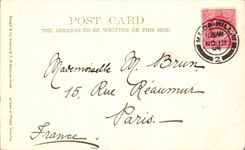 POST CARD
THE ADDRESS TO BE WRITTEN ON THIS SIDE.
Mademoiselle M. Brun
15, Rue Réaumur
Paris.
France.
2